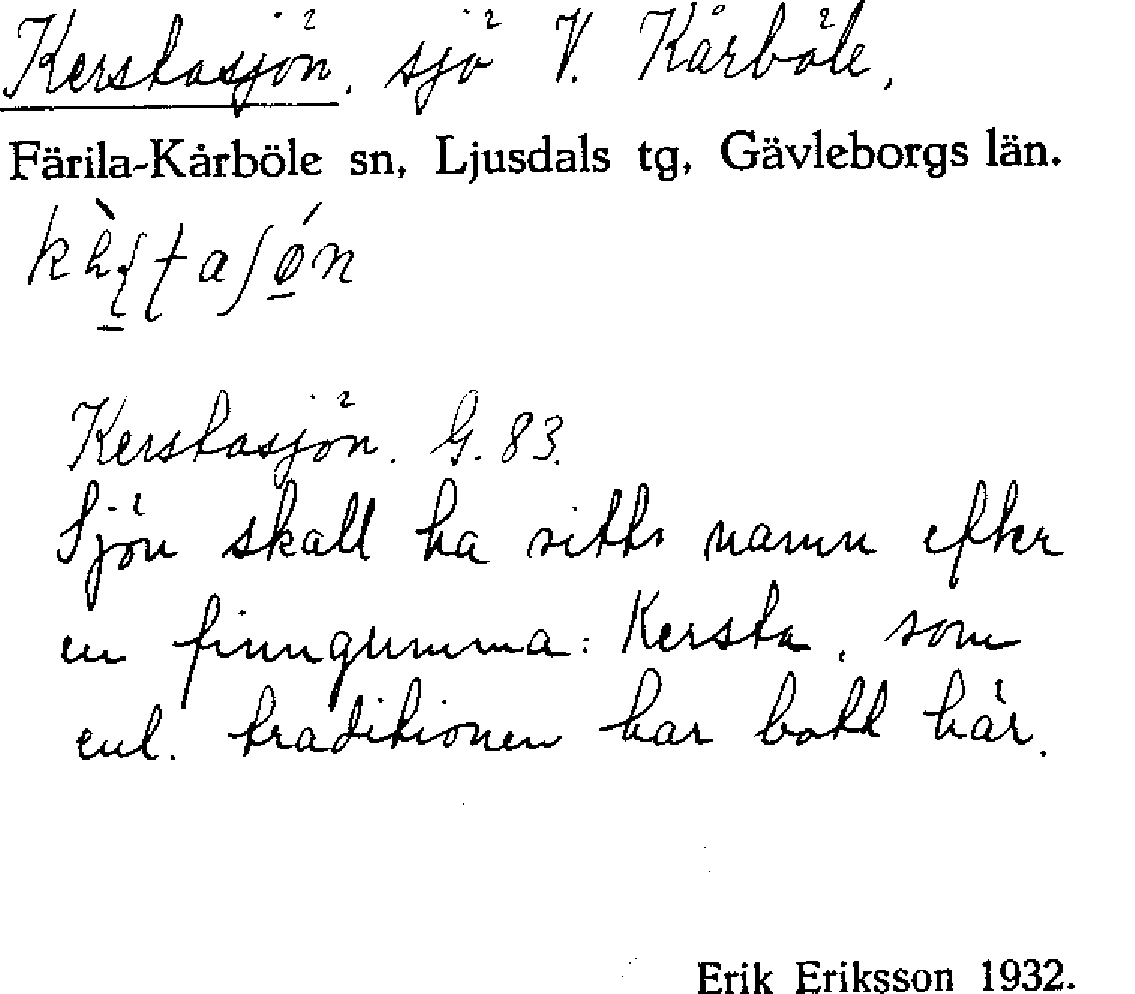 Kerstasjön, sjö V. Kårböle,
Färila-Kårböle sn, Ljusdals tg, Gävleborgs län.
Kerstasjön. G. 83.
Sjön skall ha sitt namn efter
en finngumma: Kersta, som
enl. traditionen har bott här.
Erik Eriksson 1932.